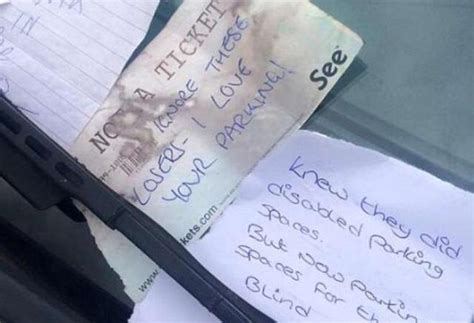 NOT A TICKET
IGNORE THESE
LOSERS - I LOVE
YOUR PARKING!
See
www.
kets.com
Knew they did
disabled parking
spaces.
But Now Parkin
spaces for th
Blind